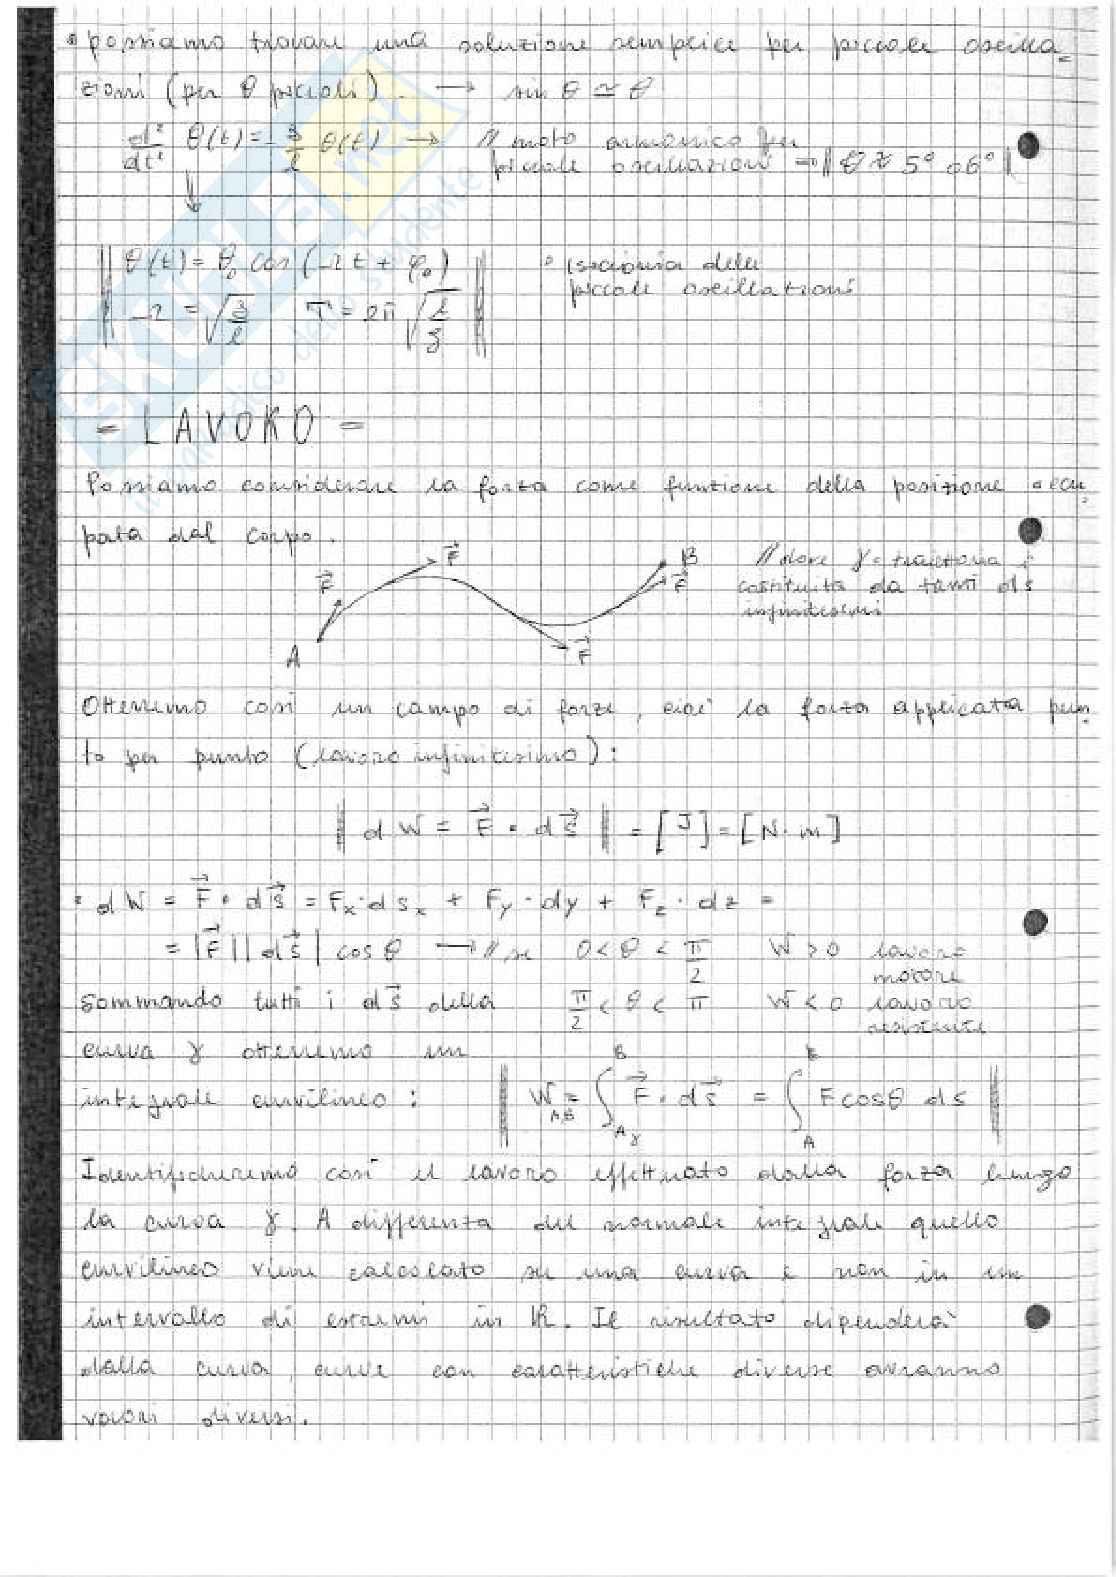 • possiamo trovare una soluzione semplice per piccole oscilla-
zioni (per θ piccoli). → sin θ ≃ θ
d²/dt² θ(t) = - g/l θ(t) → // moto armonico per
piccole oscillazioni → || θ ≈ 5° o 6° ||
θ(t) = θ₀ cos (Ω t + φ₀)
Ω = √(g/l) T = 2π √(l/g)
° isocronia delle
piccole oscillazioni
= LAVORO =
Possiamo considerare la forza come funzione della posizione occu-
pata dal corpo.
A F F F F B
// dove γ = traiettoria è
costituita da tanti ds
infinitesimi
Otteremo così un campo di forze, cioè la forza applicata pun-
to per punto (lavoro infinitesimo):
|| dW = F • ds || = [J] = [N·m]
• dW = F • ds = Fx · dsx + Fy · dy + Fz · dz =
= |F| |ds| cos θ → // se 0 < θ < π/2 W > 0 lavoro
motore
Sommando tutti i ds della π/2 < θ < π W < 0 lavoro
resistente
curva γ otteremo un
integrale curvilineo: || W_AB = ∫_Aγ^B F • ds = ∫_A^B F cosθ ds ||
Identificheremo così il lavoro effettuato dalla forza lungo
la curva γ. A differenza del normale integrale quello
curvilineo viene calcolato su una curva e non in un
intervallo di estremi in R. Il risultato dipenderà
dalla curva, curve con caratteristiche diverse avranno
valori diversi.
SKUOLA.net